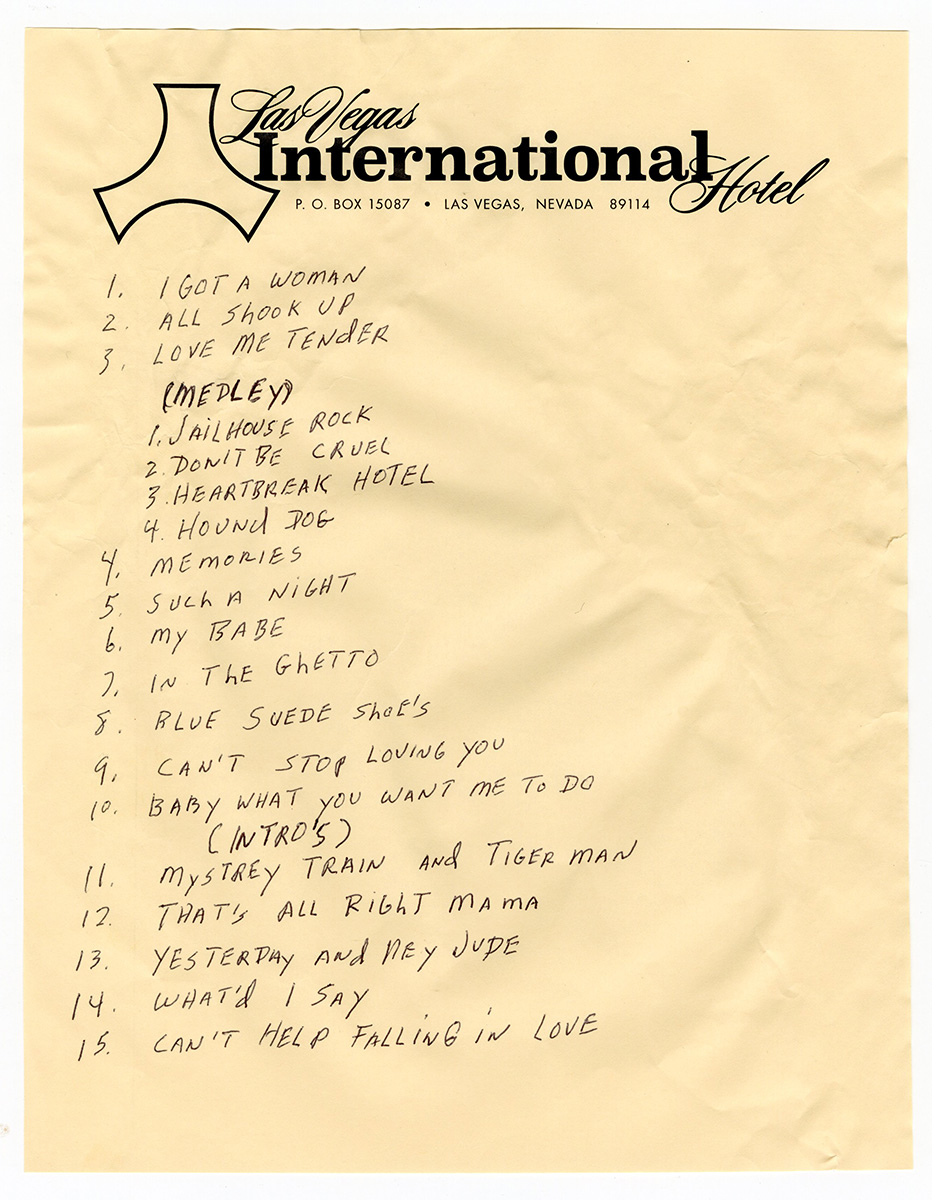 Las Vegas
International
Hotel
P. O. BOX 15087 • LAS VEGAS, NEVADA 89114
1. I GOT A WOMAN
2. ALL ShOOK UP
3. LOVE ME TENdER
(MEDLEY)
1. JAiLHOUSE ROCK
2. DON'T BE CRUEL
3. HEARTBREAK HOTEL
4. HOUNd DOG
4. MEMORiES
5. SUCh A NiGHT
6. My BABE
7. IN ThE GhETTO
8. BLUE SUEDE ShoE's
9. CAN'T STOP LOVING YOU
10. BABY WHAT YOU WANT ME To DO
(INTRO'S)
11. MySTREY TRAIN ANd TIGER MAN
12. THAT's ALL RiGhT MAMA
13. YESTERDAY ANd HEY JUDE
14. WHAT'd I SAY
15. CAN'T HELP FALLiNG iN LOVE